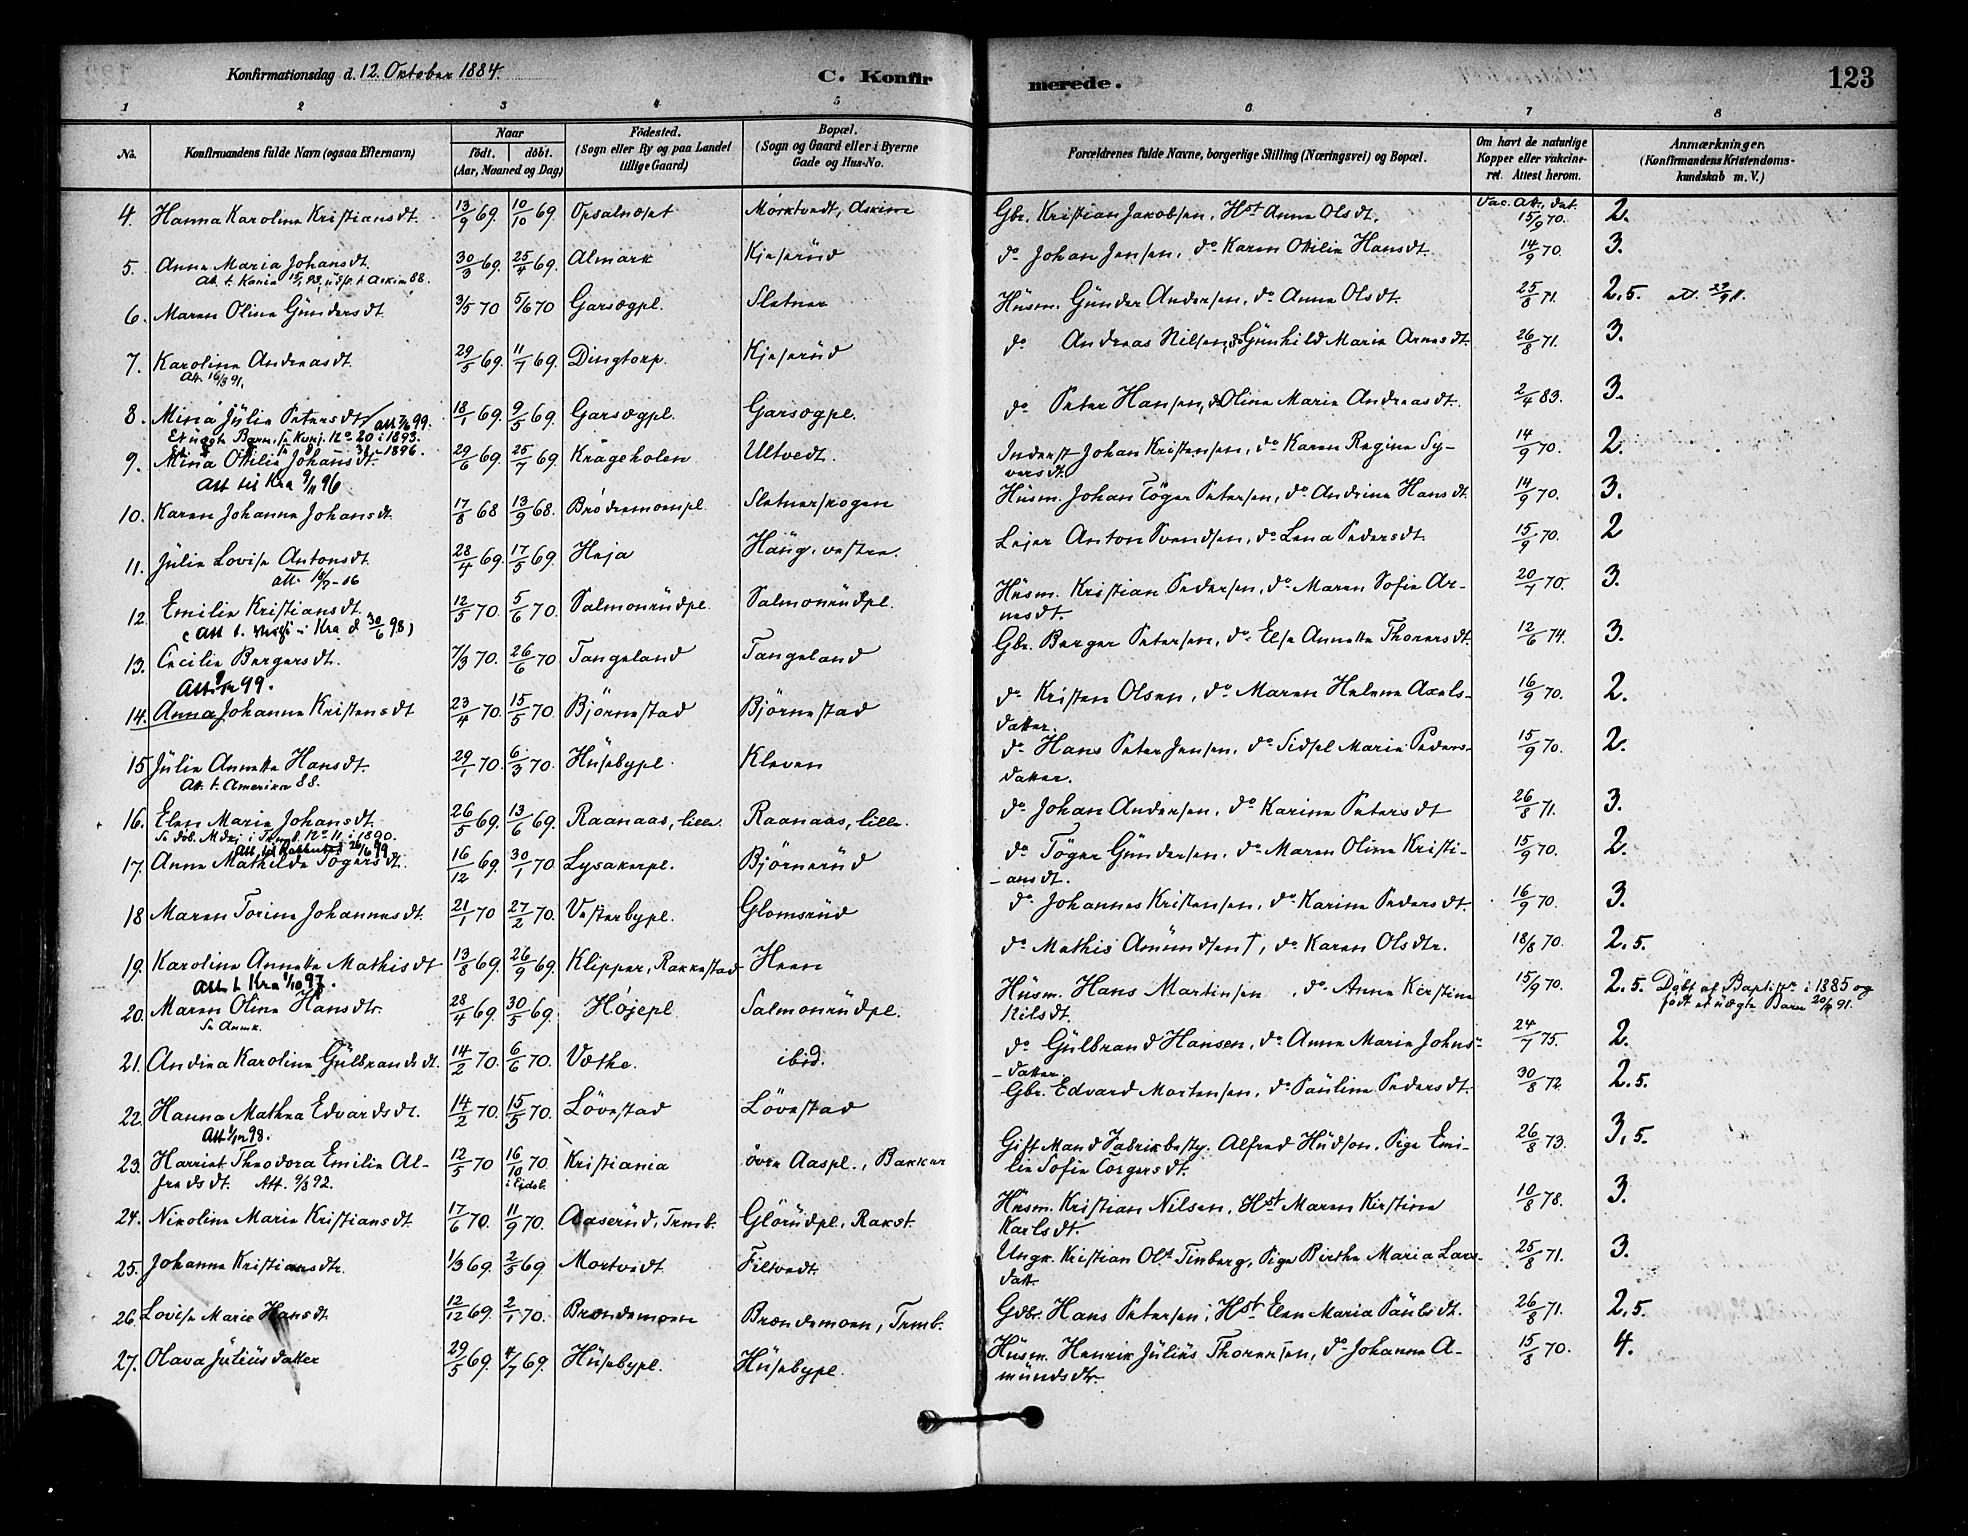 Konfirmationsdag d. 12. Oktober 1884.
C. Konfir
merede.
123
1 2 3 4 5 6 7 8
No. Konfirmandens fulde Navn (ogsaa Efternavn) Naar födt. döbt. (Aar, Maaned og Dag) Födested. (Sogn eller By og paa Landet tillige Gaard) Bopæl. (Sogn og Gaard eller i Byerne Gade og Hus-No. Forældrenes fulde Navne, borgerlige Stilling (Næringsvei) og Bopæl. Om havt de naturlige Kopper eller vakcineret. Attest herom. Anmærkninger. (Konfirmandens Kristendomskundskab m. V.)
4. Hanna Karoline Kristiansdt. 13/9 69. 10/10 69. Opsalnæset Mörktvedt, Askim Gbr. Kristian Jakobsen, Hst Anne Olsdt. Vac. Att., dat. 15/9 70. 2.
5. Anne Maria Johansdt. 30/3 69. 25/4 69. Almark Kjeserüd do Johan Jensen, do Karen Otilie Hansdt. 14/9 70. 3.
6. Maren Oline Gündersdt. 3/5 70 5/6 70 Garsegpl. Sletner Hüsm. Günder Andersen, do Anne Olsdt. 25/8 71. 2,5.
7. Karoline Andreasdt. 29/5 69. 11/7 69. Dingtorp. Kjeserüd do Andreas Nilsen, do Günhild Marie Arnesdt. 26/8 71. 3.
8. Mina Jülie Petersdt. 18/1 69. 9/5 69. Garsegpl. Garsegpl. do Peter Hansen, do Oline Marie Andreasdt. 2/4 83. 3.
Et uægte Barn, se Konf. No 20 i 1893.
9. Mina Otilie Johansdt. 29/6 69. 25/7 69. Krageholen Ultvedt. Inderst Johan Kristensen, do Karen Regine Syversdt. 14/9 70. 2.
Att til Kra 9/11 96
10. Karen Johanne Johansdt. 17/8 68 13/9 68. Sletnerskogen Hüsm. Johan Töger Petersen, do Andrine Hansdt. 14/9 70. 3.
11. Jülie Lovise Antonsdt. 28/4 69. 17/5 69. Heja Haug, vestre. Leier Anton Svendsen, do Lena Pedersdt. 15/9 70. 2
12. Emilie Kristiansdt. 12/5 70. 5/6 70. Salmonrüdpl. Salmonrüdpl. Hüsm. Kristian Pedersen, do Maren Sofie Arnesdt. 20/7 70. 3.
13. Cecilie Bergersdt. 7/3 70. 26/6 70. Tangeland Tangeland Gbr. Berger Petersen, do Else Annette Thoresdt. 12/6 74. 3.
14. Anna Johanne Kristensdt 23/4 70. 15/5 70. Björnestad Björnestad do Kristen Olsen, do Maren Helene Axelsdatter. 16/9 70. 2.
15. Jülie Annette Hansdt. 29/1 70. 6/3 70. Hüsebypl. Kleven do Hans Peter Jensen, do Sidsel Marie Pedersdatter. 15/9 70. 2.
Att. t. Amerika 88.
16. Elen Marie Johansdt. 26/5 69. 13/6 69. Raanaas, lille. Raanaas, lille. do Johan Andersen, do Karine Petersdt 26/8 71. 3.
17. Anne Mathilde Tögersdt. 16/12 69. 30/1 70 Lysakerpl. Björnerüd do Töger Gündersen, do Maren Oline Kristiansdt. 15/9 70. 2.
18 Maren Torine Johannesdt. 21/1 70 27/2 70. Vesterbypl. Glomsrüd do Johannes Kristensen, do Karine Pedersdt. 16/9 70. 3.
19. Karoline Annette Mathisdt 13/8 69. 26/9 69. Klipper, Rakkestad Heen do Mathis Amündsen †, do Karen Olsdtr. 18/8 70. 2,5.
20. Maren Oline Hansdtr. 28/4 69. 30/5 69. Höjepl. Salmonrüdpl. Hüsm. Hans Martinsen, do Anne Kirstine Nilsdt. 15/9 70. 2,5. Döbt af Baptister i 1885 og
Se Anmk. født et uægte Barn
21. Andrea Karoline Gülbrandsdt. 14/2 70. 6/6 70. Vethe. ibid. do Gülbrand Hansen, do Anne Marie Johnsdatter. 24/7 75. 2.
22. Hanna Mathea Edvardsdt. 14/2 70. 15/5 70. Lövestad Lövestad Gbr. Edvard Mortensen, do Pauline Pedersdt. 30/8 72. 2,5.
23. Harriet Theodora Emilie Alfredsdt. Att. 9/3 92. 12/5 70 16/10 70. i Eidsb. Kristiania övre Aaspl., Bakker Gift Mand Fabrikbesty. Alfred Hüdson, Pige Emilie Sofie Torgersdt. 26/8 73. 3,5.
24. Nikoline Marie Kristiansdt. 17/6 70. 11/9 70. Aaserüd, Trmb. Glörüdpl. Rakst. Hüsm. Kristian Nilsen, Hst Maren Kirstine Karlsdt. 10/8 78. 3.
25. Johanne Kristiansdtr. 1/3 69. 2/5 69 Mortvedt Filtvedt. Ungk. Kristian Ols. Tinberg, Pige Birthe Maria Larsdatt. 25/8 71. 3.
26. Lovise Marie Hansdt. 12/12 69. 2/1 70. Brændemoen Brændemoen, Trmb. Gdbr. Hans Petersen, Hst. Elen Maria Paülsdt. 26/8 71. 2,5.
27. Olava Jüliüsdatter 29/5 69. 4/7 69. Hüsebypl. Hüsebypl. Hüsm. Henrik Jüliüs Thoresen, do Johanne Amündsdtr. 15/8 70. 4.